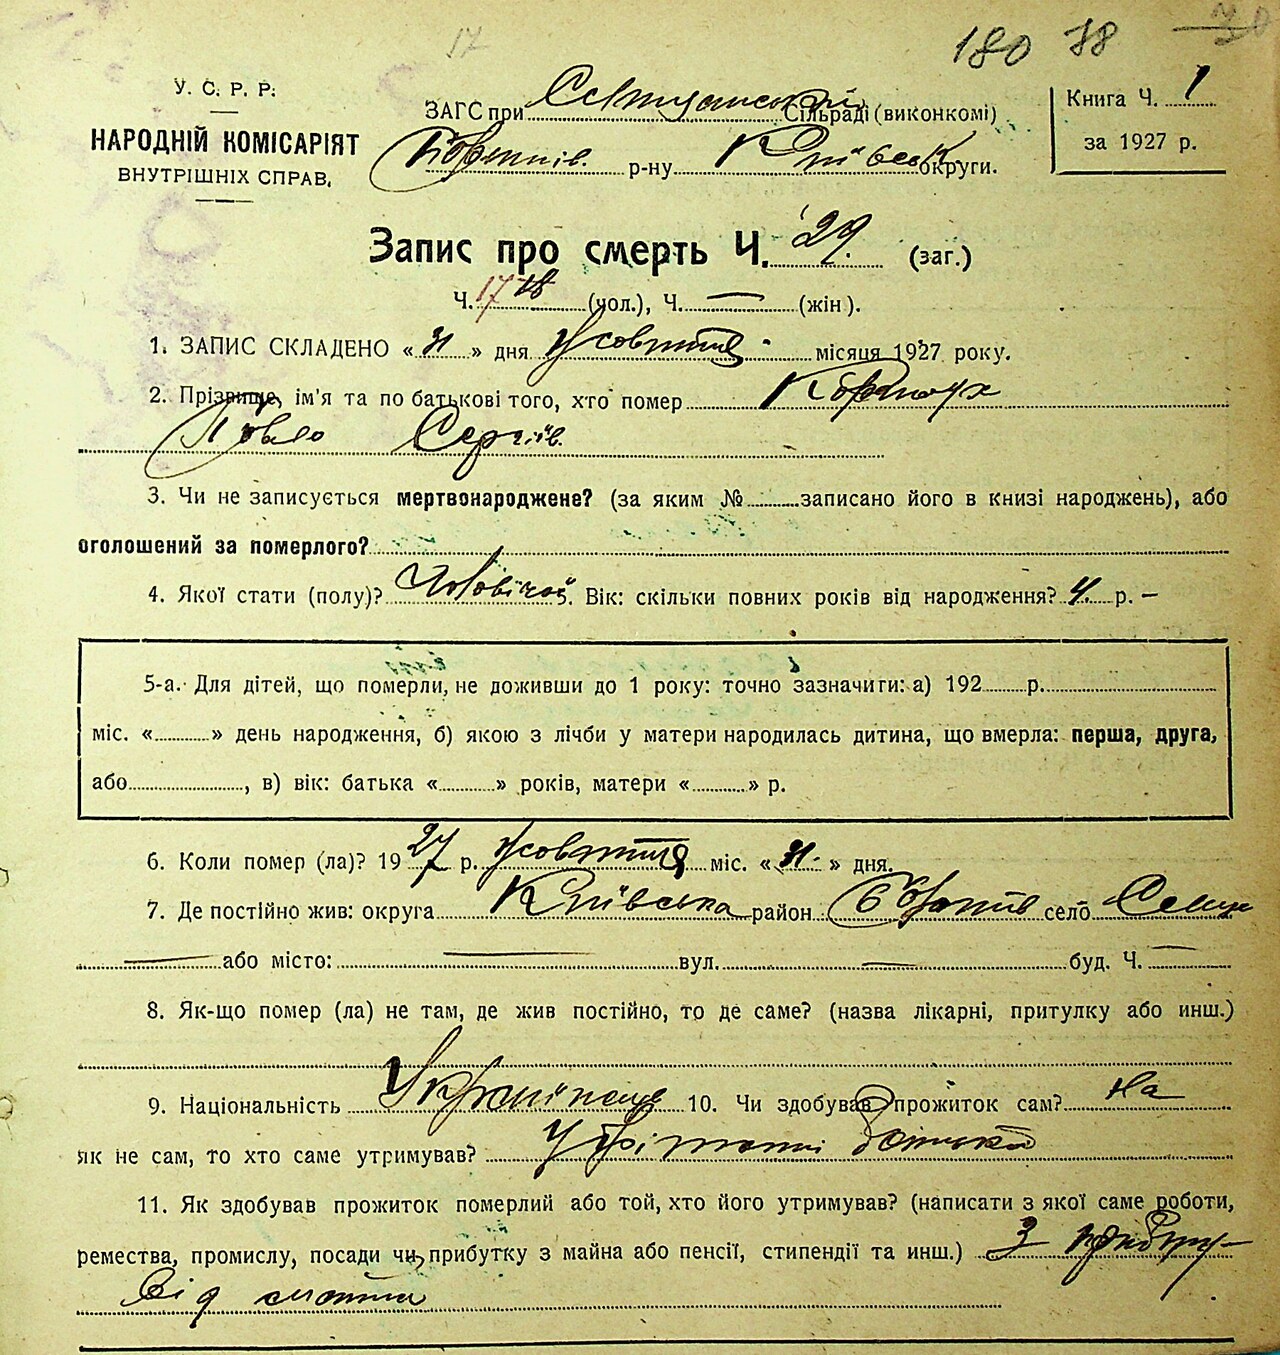 17 180 78
У. С. Р. Р.
НАРОДНІЙ КОМІСАРІЯТ
ВНУТРІШНІХ СПРАВ.
ЗАГС при Сільраді (виконкомі)
р-ну Київськ округи.
Книга Ч. 1
за 1927 р.
Запис про смерть Ч. 29. (заг.)
Ч. 17 18 (чол.), Ч. — (жін).
1. ЗАПИС СКЛАДЕНО « 31 » дня Жовтня місяця 1927 року.
2. Прізвище, ім'я та по батькові того, хто помер
Павло Сергіїв.
3. Чи не записується мертвонароджене? (за яким № записано його в книзі народжень), або
оголошений за померлого?
4. Якої стати (полу)? Чоловічої 5. Вік: скільки повних років від народження? 4. р. —
5-а. Для дітей, що померли, не доживши до 1 року: точно зазначити: а) 192 р.
міс. « » день народження, б) якою з лічби у матери народилась дитина, що вмерла: перша, друга,
або , в) вік: батька « » років, матери « » р.
6. Коли помер (ла)? 1927 р. Жовтня міс. « 31. » дня.
7. Де постійно жив: округа Київська район село
— або місто: — вул. — буд. Ч. —
8. Як-що помер (ла) не там, де жив постійно, то де саме? (назва лікарні, притулку або инш.)
9. Національність Українець 10. Чи здобував прожиток сам? На
як не сам, то хто саме утримував? утріманні батька
11. Як здобував прожиток померлий або той, хто його утримував? (написати з якої саме роботи,
ремества, промислу, посади чи прибутку з майна або пенсії, стипендії та инш.) З прибутку
від